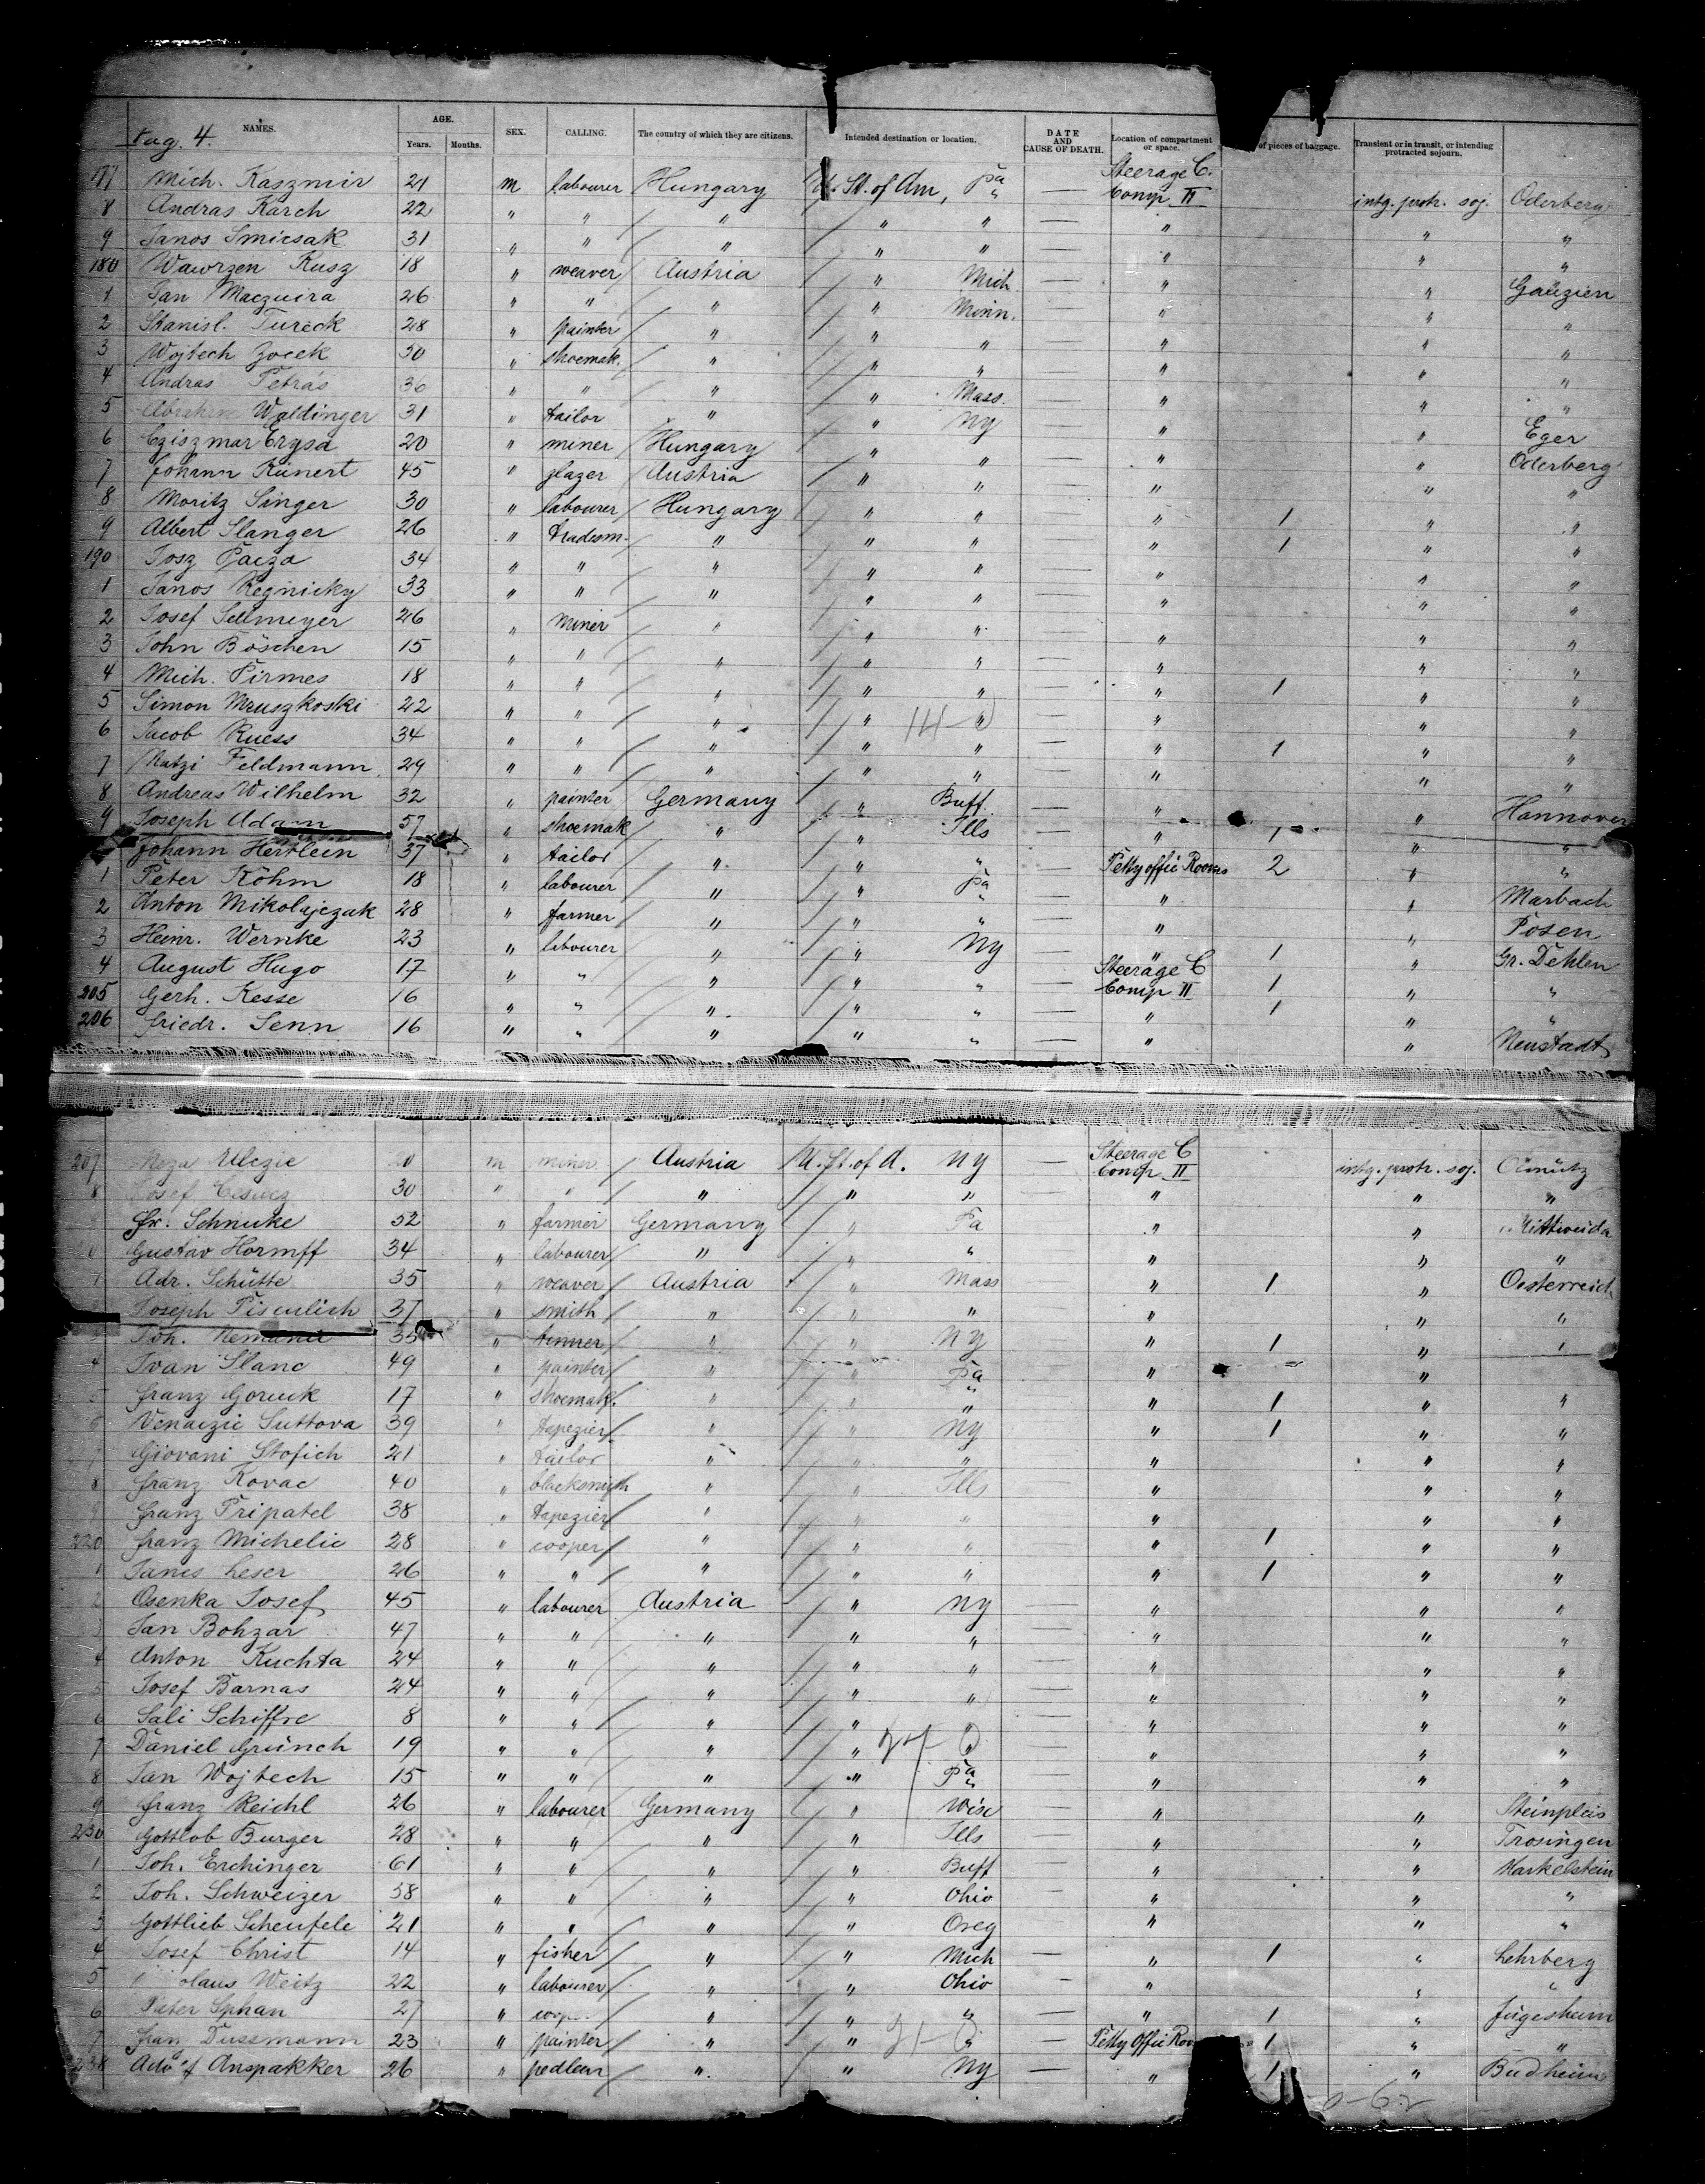 NAMES. AGE. Years. Months. SEX. CALLING. The country of which they are citizens. Intended destination or location. DATE AND CAUSE OF DEATH. Location of compartment or space. of pieces of baggage. Transient or in transit, or intending protracted sojourn.
Pag. 4.
177 Mich. Kaszmir 21 m labourer Hungary U. St. of Am, Pa — Steerage C. Comp II intg. protr. soj. Oderberg
8 Andras Karch 22 " " " " " — " " "
9 Janos Smicsak 31 " " " " " — " " "
180 Wawrzen Rusz 18 " weaver Austria " Mich — " " Galizien
1 Jan Maczuira 26 " " " " Minn. — " " "
2 Stanisl. Tureck 28 " painter " " " — " " "
3 Wojtech Zocek 30 " shoemak. " " " — " " "
4 Andras Petras 36 " " " " Mass. — " " "
5 Abrahm Waldinger 31 " tailor " " NY — " " Eger
6 Cziszmar Erysa 20 " miner Hungary " " — " " Oderberg
7 Johann Künert 45 " glazer Austria " " — " " "
8 Moritz Singer 30 " labourer Hungary " " — " 1 " "
9 Albert Slanger 26 " tradesm. " " " — " 1 " "
190 Josz Pacza 34 " " " " " — " " "
1 Janos Regnicky 33 " " " " " — " " "
2 Josef Sellmeyer 26 " miner " " " — " " "
3 John Böschen 15 " " " " " — " " "
4 Mich. Pirmes 18 " " " " " — " 1 " "
5 Simon Mruszkoski 22 " " " " " — " " "
6 Jacob Ruess 34 " " " " " — " 1 " "
7 Natzi Feldmann 29 " " " " " — " " "
8 Andreas Wilhelm 32 " painter Germany " Buff. — " " Hannover
9 Joseph Adam 57 " shoemak " " Ills — " 1 " "
Johann Hertlein 37 " tailor " " " — Petty offic Rooms 2 " "
1 Peter Röhm 18 " labourer " " Pa — " " Marbach
2 Anton Mikolajczak 28 " farmer " " " — " " Posen
3 Heinr. Wernke 23 " labourer " " NY — " 1 " Gr. Dehlen
4 August Hugo 17 " " " " " — Steerage C Comp II 1 " "
205 Gerh. Kesse 16 " " " " " — " 1 " "
206 Friedr. Senn 16 " " " " " — " " Neustadt
207 Ulczie m miner Austria U. St. of A. NY — Steerage C Comp II intg. protr. soj. Olmütz
8 Josef 30 " " " " " — " " "
Fr. Schnuke 52 " farmer Germany " Pa " " Mittweida
Gustav Hormff 34 " labourer " " " " " "
1 Adr. Schütte 35 " weaver Austria " Mass " 1 " Oesterreich
Joseph Pisculich 37 " smith " " " " " "
Joh. 35 " tanner " " NY " 1 " "
4 Ivan Slanc 49 " painter " " Pa " "
5 Franz Goruck 17 " shoemak. " " " " 1 " "
6 Venaczie Suttova 39 " tapezier " " NY " 1 " "
Giovani Stofich 21 " tailor " " " " " "
8 Franz Kovac 40 " blacksmith " " Ills " " "
9 Franz Pripatel 38 " tapezier " " " " " "
220 Franz Michelic 28 " cooper " " " " 1 " "
1 Janes Leser 26 " " " " " " 1 " "
2 Osenka Josef 45 " labourer Austria " NY — " " "
3 Jan Bohzar 47 " " " " " — " " "
4 Anton Kuchta 24 " " " " " — " " "
5 Josef Barnas 24 " " " " " — " " "
6 Sali Schiffre 8 " " " " — " " "
7 Daniel Grünch 19 " " " " " — " " "
8 Jan Wojtech 15 " " " " Pa — " " "
9 Franz Reichl 26 " labourer Germany " Wisc — " " Steinpleis
230 Gottlob Burger 28 " " " " Ills — " " Trosingen
1 Joh. Erchinger 61 " " " " Buff — " " Harkelstein
2 Joh. Schweizer 38 " " " " Ohio — " " "
3 Gottlieb Scheufele 21 " " " " Oreg — " " "
4 Josef Christ 14 " fisher " " Mich — " 1 " Lehrberg
5 olaus Weitz 22 " labourer " " Ohio — " " "
6 Peter Sphan 27 " " " " — " 1 " Jügesheim
7 Franz Dussmann 23 " painter " " " — Petty Offic 1 " "
238 Adolf Anspakker 26 " pedlear " " NY — " 1 " Budheim